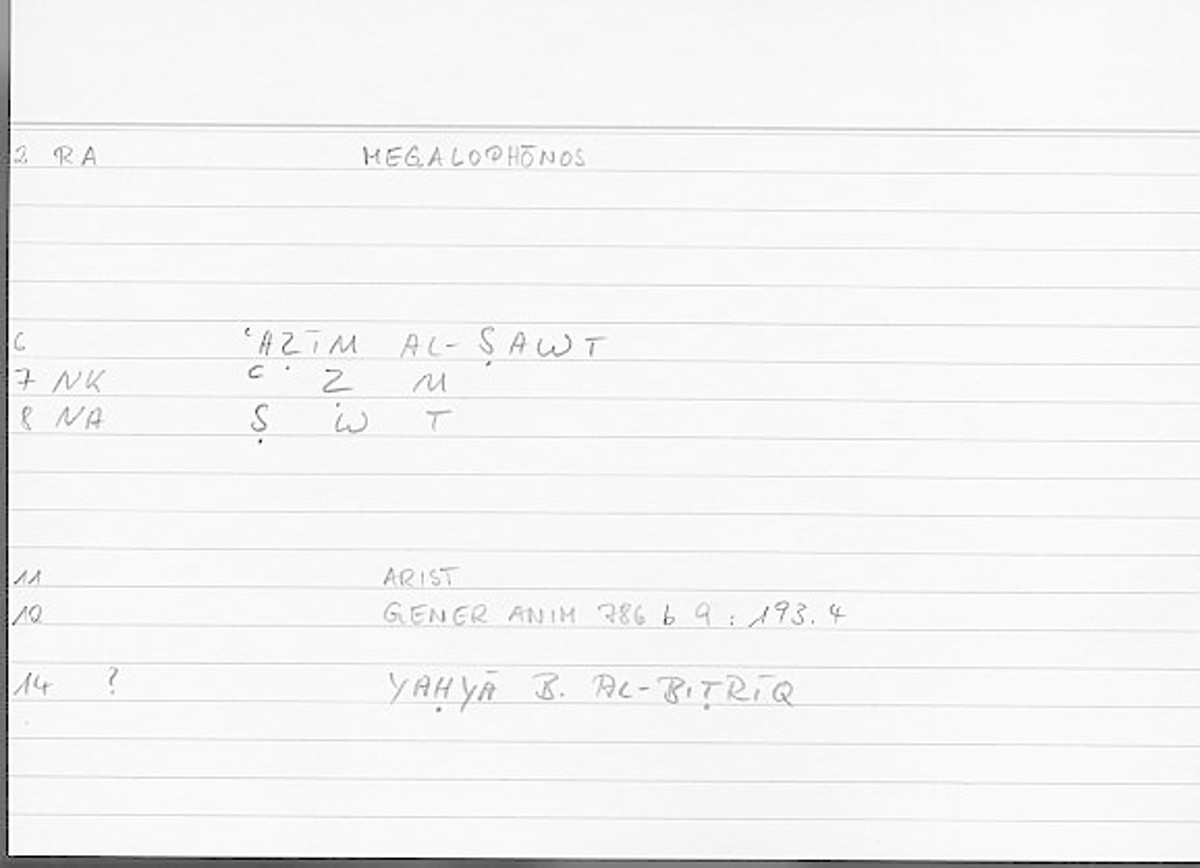 2 RA MEGALOPHŌNOS
6 ʿAẒĪM AL-ṢAWT
7 NK ʿ Ẓ M
8 NA Ṣ W T
11 ARIST
12 GENER ANIM 786 b 9 : 193.4
14 ? YAḤYĀ B. AL-BIṬRĪQ